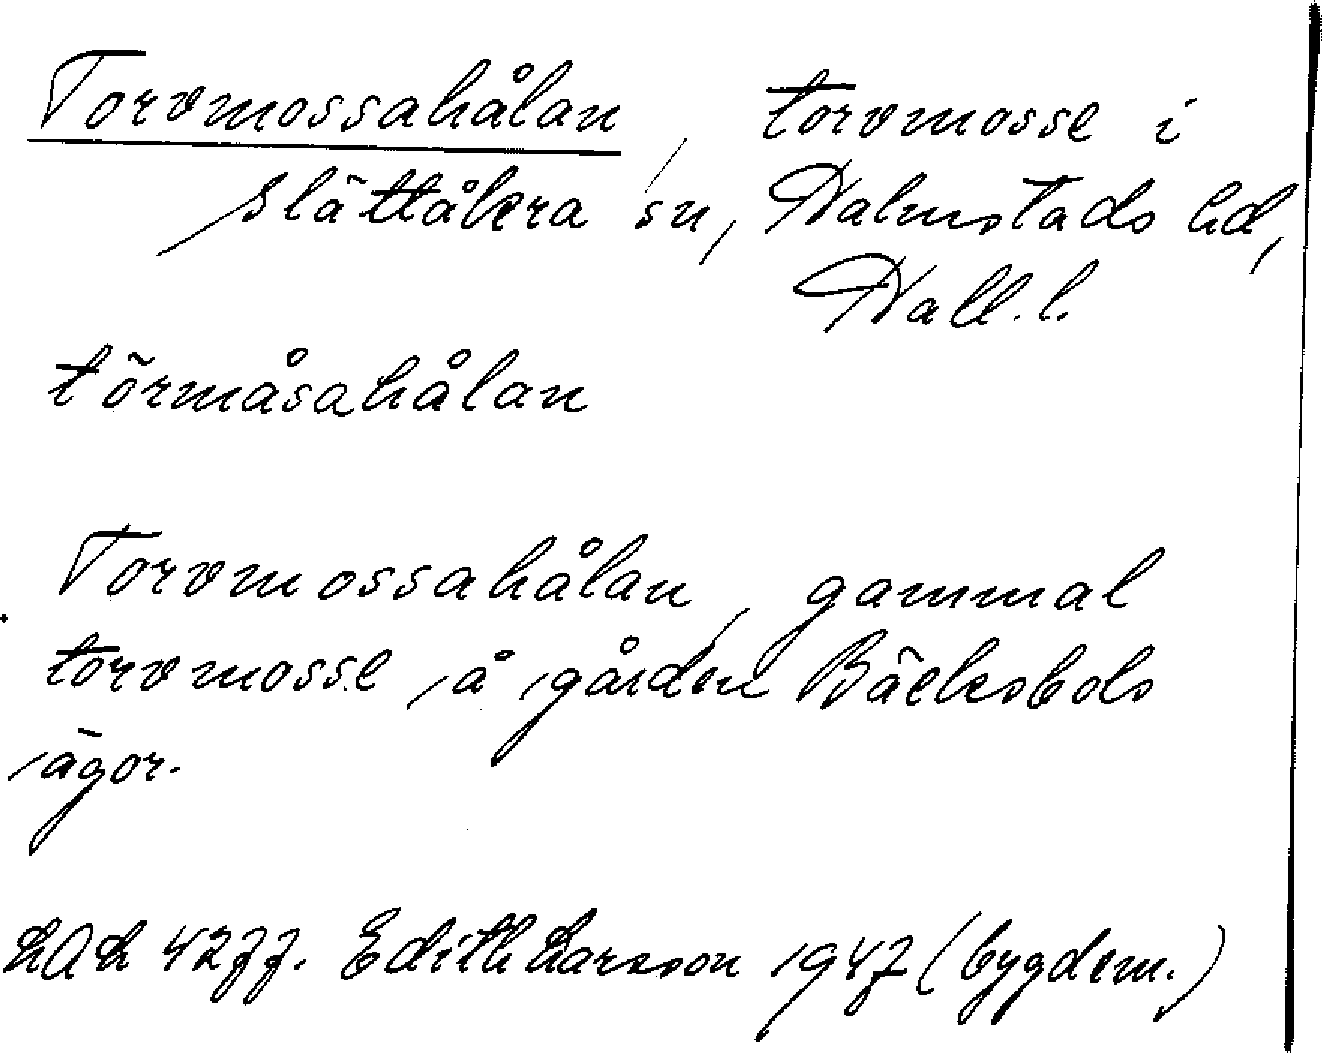 Torvmossahålan, torvmosse i
Slättåkra sn, Halmstads hd,
Hall. l.
tõrmåsahålan
Torvmossahålan, gammal
torvmosse å gården Bäcksbols
ägor.
LAL 4277. Edith Larsson 1947 (bygdem.)